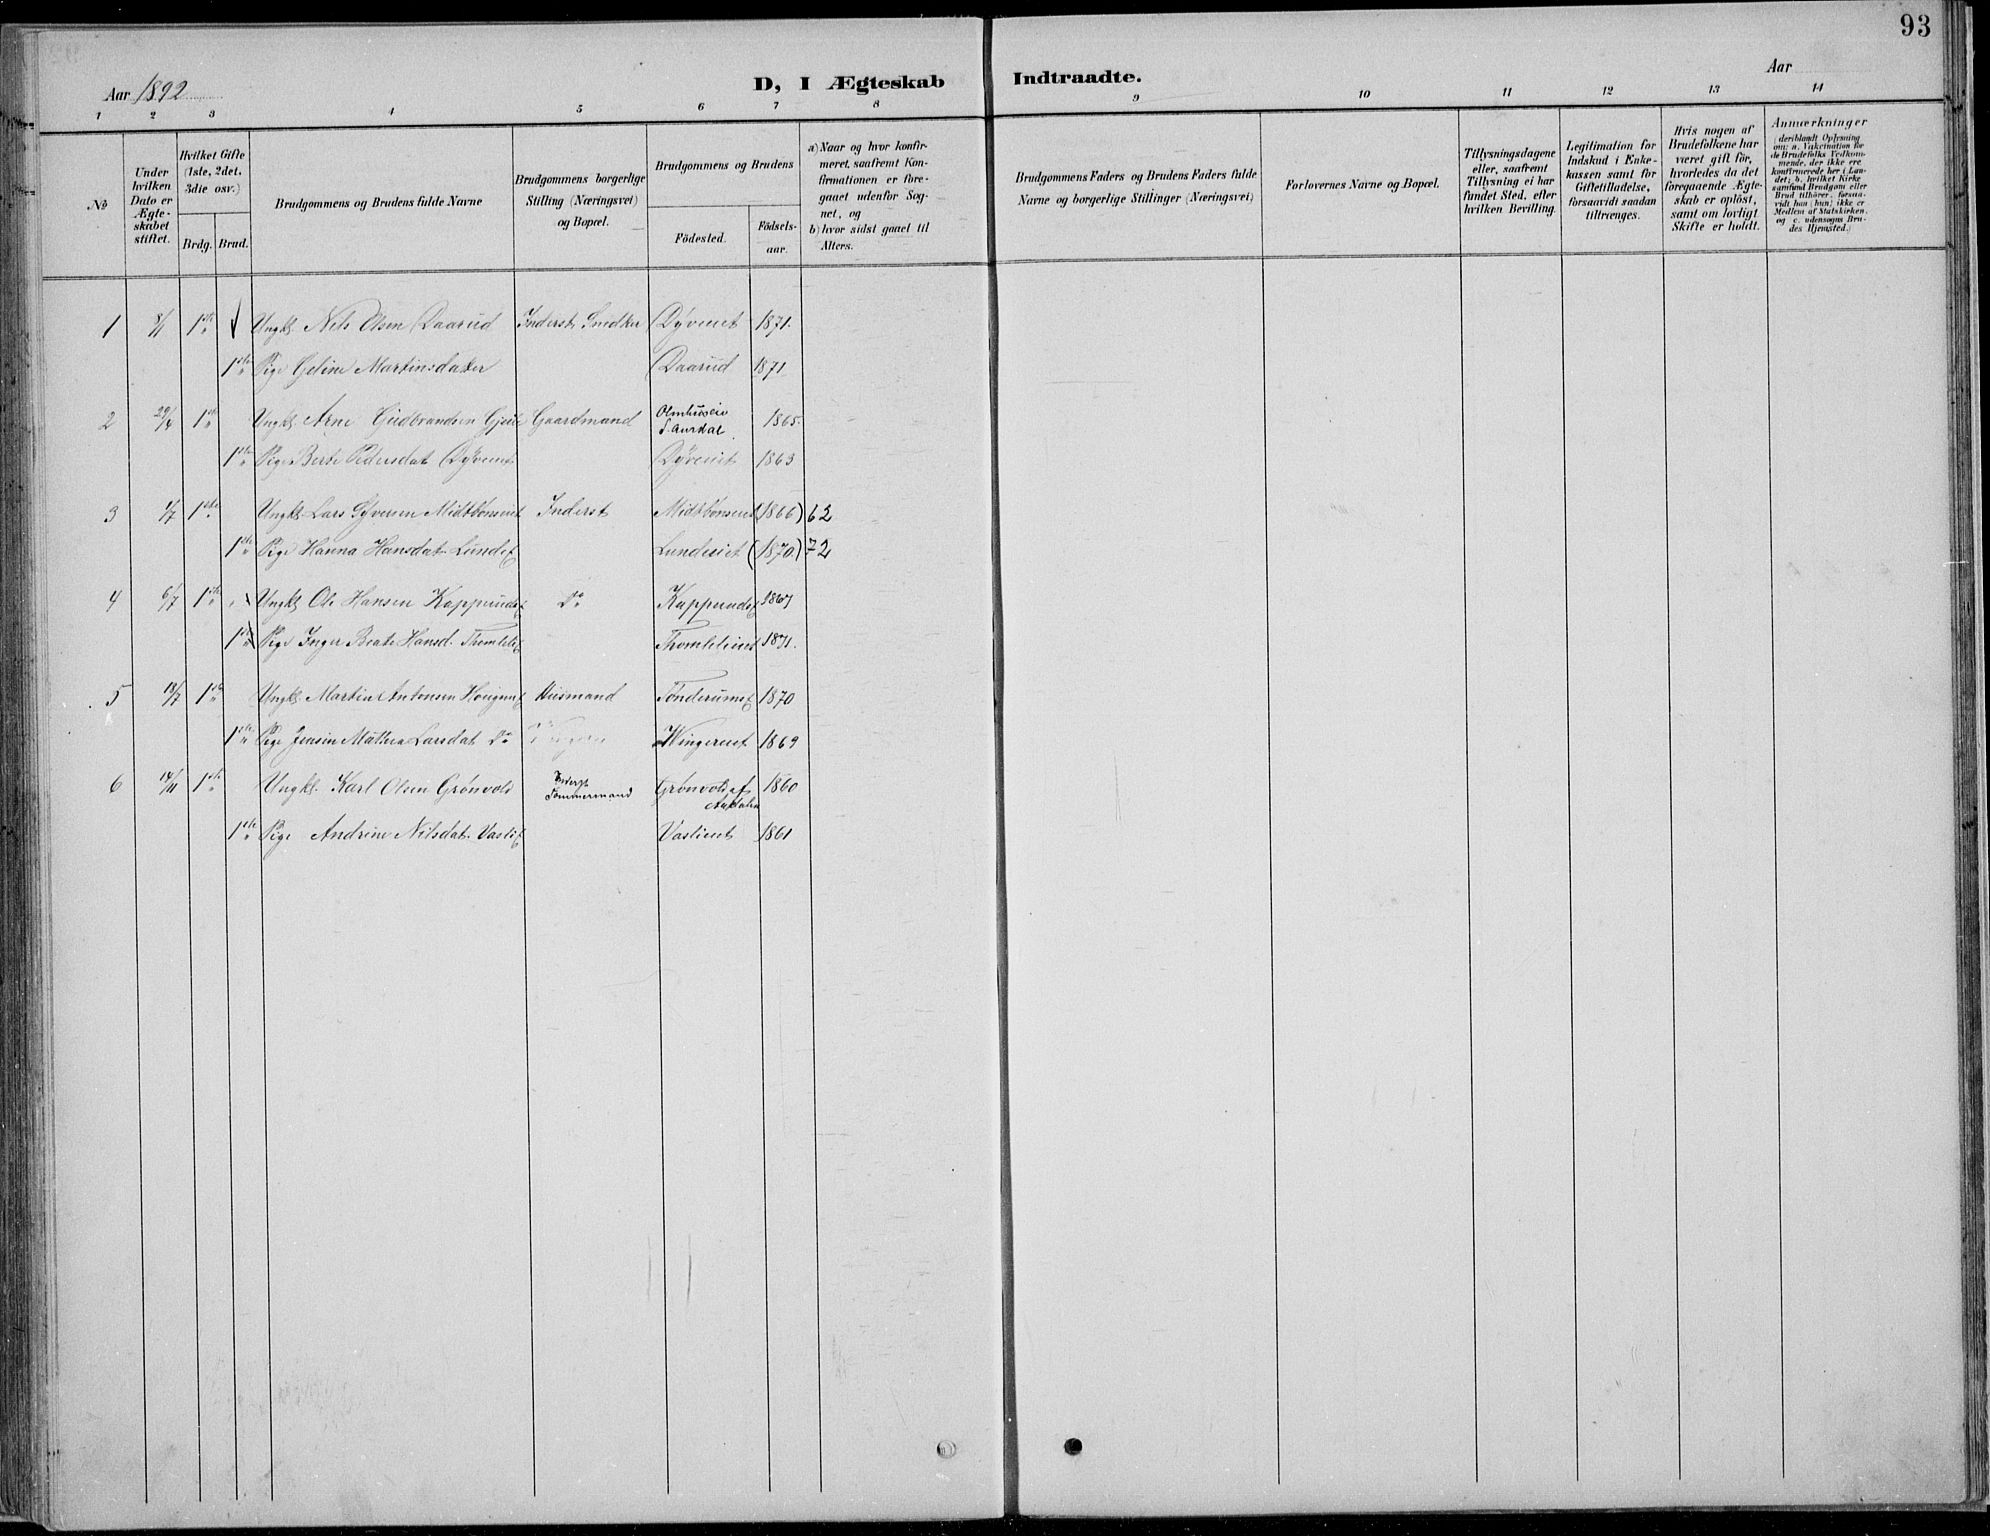 93
Aar 1892
D, I Ægteskab Indtraadte.
Aar
1 2 3 4 5 6 7 8 9 10 11 12 13 14
No
Under hvilken Dato er Ægte-skabet stiftet.
Hvilket Gifte (1ste, 2det, 3die osv.)
Brdg. Brud.
Brudgommens og Brudens fulde Navne
Brudgommens borgerlige Stilling (Næringsvei) og Bopæl.
Brudgommens og Brudens
Födested.
Födsels-aar.
a) Naar og hvor konfir-meret, saafremt Kon-firmationen er fore-gaaet udenfor Sog-net, og
b) hvor sidst gaaet til Alters.
Brudgommens Faders og Brudens Faders fulde Navne og borgerlige Stillinger (Næringsvei)
Forlovernes Navne og Bopæl.
Tillysningsdagene eller, saafremt Tillysning ei har fundet Sted, efter hvilken Bevilling.
Legitimation for Indskud i Enke-kassen samt for Giftetilladelse, forsaavidt saadan tiltrænges.
Hvis nogen af Brudefolkene har været gift för, hvorledes da det foregaaende Ægte-skab er oplöst, samt om lovligt Skifte er holdt.
Anmærkninger (deriblandt Oplysning om: a. Vakcination for de Brudefolks Vedkom-mende, der ikke ere konfirmerede her i Lan-det; b. hvilket Kirke-samfund Brudgom eller Brud tilhörer, forsaa-vidt han (hun) ikke er Medlem af Statskirken. og c. udensogns Bru-des Hjemsted.)
1 8/1 1ste Ungkl. Nils Olsen Daarud Inderst, Snedker Dÿveiet 1871.
1ste Pige Geline Martinsdatter Daarud 1871
2 29/4 1ste Ungkl. Arne Gudbrandsen Gaardmand S. Aurdal 1865.
1ste Pige Berte Pedersdat. Dÿveiet Dÿveiet 1863
3 1/7 1ste Ungkl. Lars Syversen Midtbönseiet Inderst Midtbonseiet (1866) 62
1ste Pige Hanna Hansdat. Lunde Lundeiet (1870.) 72
4 6/7 1ste Ungkl. Ole Hansen Kapperud Do Kapperud 1867
1ste Pige Inger Beate Hansd. Thomleleiet 1871.
5 18/7 1ste Ungkl. Martin Antonsen Husmand 1870
1ste Pige Jensine Mathea Larsdat. Do Wingereiet 1869
6 14/11 1ste Ungkl. Karl Olsen Grönvold Inderst Tømmermand Grönvold af 1860
1ste Pige Andrine Nilsdat. Vasli Vaslieiet 1861